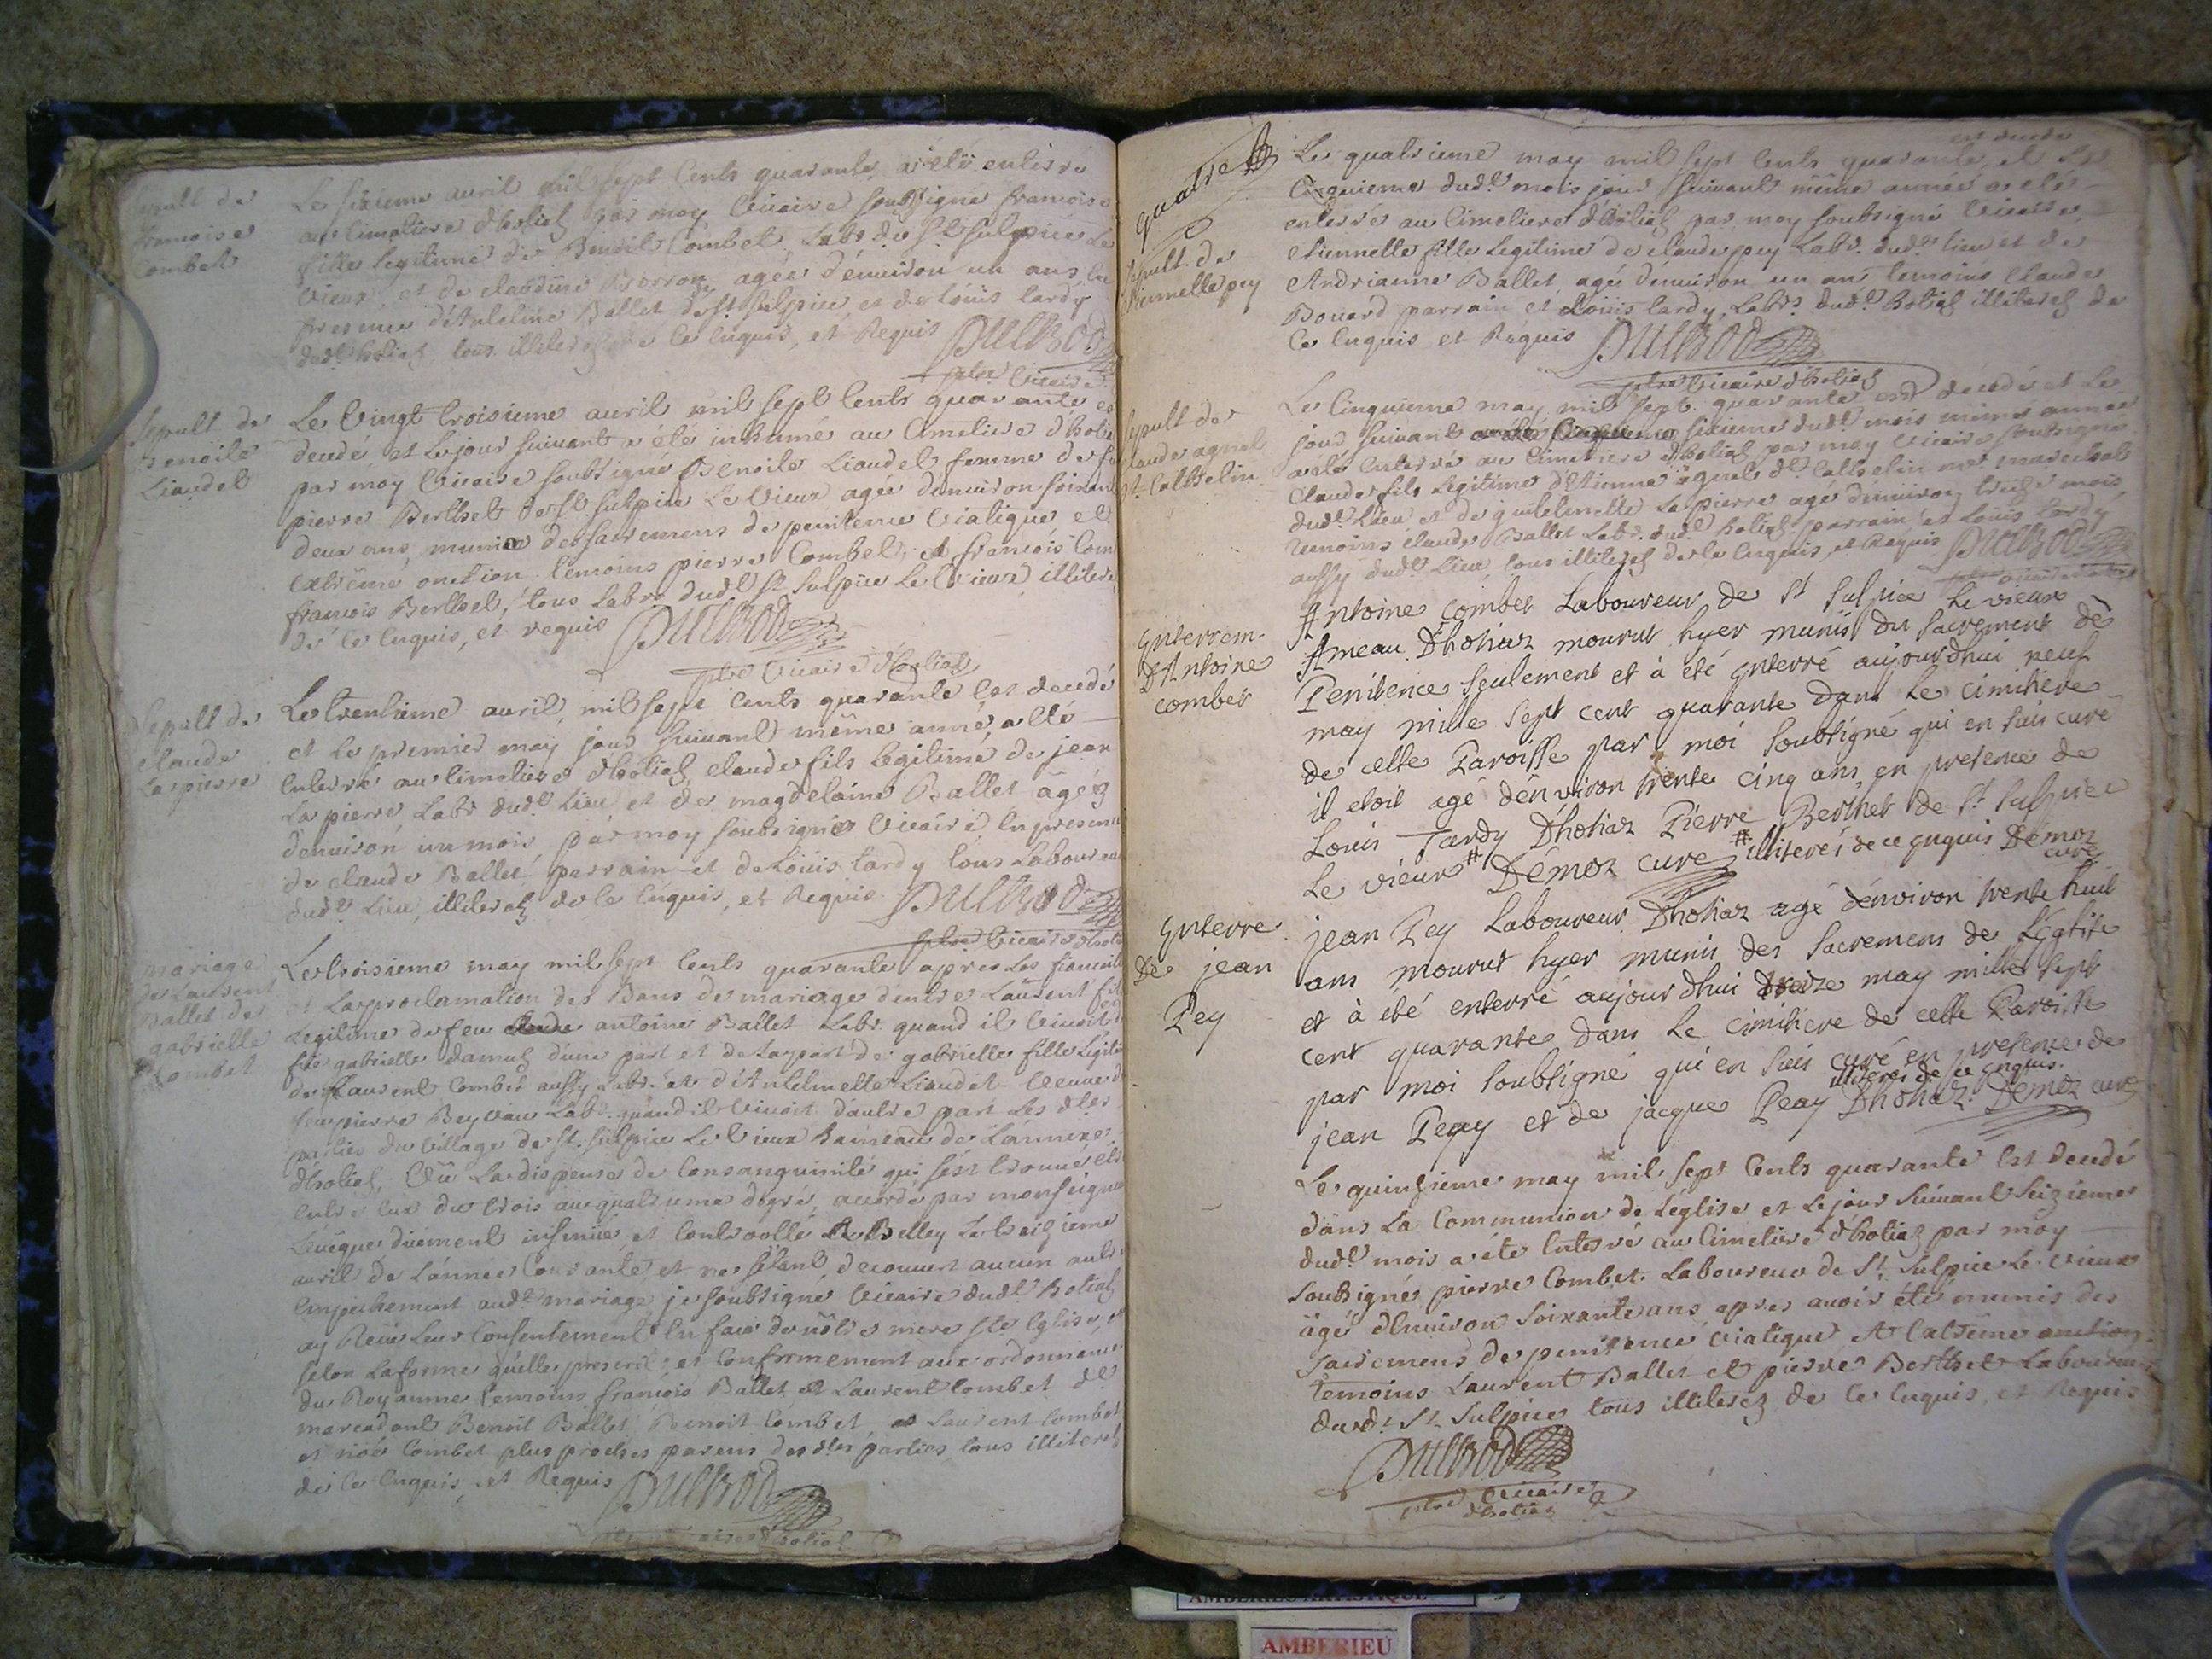 Sepult de
francoise
Combet
Le sixieme avril mil sept Cents quarante, a eté enterré
au Cimetiere dhotiaz par moy Vicaire soussigné francoise
fille legitime de Benoit Combet Labr. de St Sulpice Le
Vieux et de claudine Borron, agée d'environ un ans, en
presence d'Antelme Ballet de St Sulpice, et de Loüis tardy
dudt. hotiaz tous illiterez de ce Enquis, et Requis
ptre Vicaire
Sepult de
Benoite
Liaudet
Le Vingt troisieme avril mil sept Cents quarante est
decedé et Le jour suivant a été inhumé au Cimetiere d'hotiaz
par moy Vicaire soubsigné Benoite Liaudet femme de
pierre Berthet de St. sulpice Le Vieux agée denviron soixante
deux ans, munie des sacremens de penitence Viatique et
extrême onction temoins pierre Combet, et francois Com
francois Berthet, tous Labrs dudt St. Sulpice Le Vieux, illiterez
de ce Enquis, et requis
ptre Vicaire dhotiaz
Sepult de
claude
Lapierre
Le trentieme avril, mil sept Cents quarante Est decedé
et Le premier may jour suivant même anné, a eté
Enterré au Cimetiere dhotiaz, claude fils Legitime de jean
Lapierre Labr dudt. Lieu et de magdelaine Ballet âgé
denviron un mois par moy soubsigné Vicaire, En presence
de claude Ballet parrain et de Loüis tardy tous Laboureurs
dudt. Lieu, illiterez de ce Enquis, et Requis
ptre Vicaire dhotiaz
mariage
de Laurent
Ballet et de
gabrielle
Combet
Le troisieme may mil sept Cents quarante apres Les fiancailles
et La proclamation des Bans de mariage d'entre Laurent fils
Legitime de feu antoine Ballet Labr. quand il Vivoit et
de gabrielle d'une part et de La part de gabrielle fille Legitime
de Laurent Combet aussy Labr. et d'Antelmette Liaudet Veuve de
feu pierre Beyvau Labr. quand il Vivoit d'autre part Les dtes
parties du Village de St. Sulpice Le Vieux hameau de L'annexe
d'hotiaz, Vû La dispense de Consanguinité qui s'est trouvée
Entre Eux du trois au quatrieme degré, accordé par monseigneur
L'évêque düement insinuée et Controollé à Belley Le treizieme
avril de L'année Courante, et ne s'étant decouvert aucun autre
Empechement audt. mariage je soubsigné Vicaire dudt hotiaz
ay Reçu Leur Consentement En face de nôtre mere Ste Eglise,
selon La forme qu'elle prescrit, et Conformement aux ordonnances
du Royaume temoins francois Ballet et Laurent Combet dt
marcadant Benoit Ballet Benoit Combet, et Laurent Combet
et Combet plus proches parens des dtes parties, tous illiterez
de ce Enquis, et Requis
quatre
Sepult. de
Etiennette pey
est decedé
Le quatrieme may mil sept Cents quarante, et Le
Cinquieme dudt. mois jour suivant même année a eté
enterré au Cimetiere d'hotiaz par moy soubsigné Vicaire
Etiennette fille Legitime de claude pey Labr. dudt. lieu et de
Andrianne Ballet, agé d'environ un an temoins Claude
Bouard parrain et Louis tardy, Labrs. dudt. hotiaz illiterez de
Ce Enquis et Requis
ptre Vicaire dhotiaz
Sepult de
claude agnel
dt. Catthelin
Le Cinquieme may mil sept quarante est decedé et Le
jour suivant sixieme dudt. mois même année
a eté Enterré au Cimetiere dhotiaz par moy Vicaire soubsigné
Claude fils Legitime d'Etienne agnel dt. Catthelin mt. marechal
dudt. Lieu et de guillelmette Lapierre agé denviron treize mois
temoins claude Ballet Labr. dudt. hotiaz parrain et Louis tardy
aussy dudt. Lieu, tous illiterez de Ce Enquis et Requis
Enterrem.
d'Antoine
combet
Antoine combet Laboureur de St Sulpice Le vieux
Ameau Dhotiaz mourut hyer munis du sacrement de
Penitence seulement et à eté Enterré aujourdhui neuf
may mille sept cent quarante dans Le cimitiere
de cette Paroisse par moi soubsigné qui en suis curé
il etoit agé d'environ trente cinq ans en presence de
Louis Tardy Dhotiaz Pierre Berthet de St Sulpice
Le vieux # Démoz curé # illiterés de ce Enquis Démoz
curé
Enterre
De jean
Pey
jean Pey Laboureur Dhotiaz agé d'environ trente huit
ans mourut hyer munis des sacremens de L'Eglise
et à eté enterré aujourdhui treize may mille sept
cent quarante dans Le cimitiere de cette Paroisse
par moi soubsigné qui en suis curé en presence de
illiterés de ce Enquis.
jean Pey et de jacque Peay Dhotiaz Démoz curé
Le quinzieme may mil sept Cents quarante Est decedé
dans La Communion de L'église et Le jour suivant seizieme
dudt. mois a éte Enterré au Cimetiere dhotiaz par moy
soubsigné pierre Combet. Laboureur de St. Sulpice Le Vieux
âgé d'Environ soixante ans apres avoir été munis des
sacremens de penitence Viatique et Extreme onction
temoins Laurent Ballet et pierre Berthet Laboureurs
dudt. St. Sulpice tous illiterez de Ce Enquis, et Requis
ptre Vicaire
dhotiaz
AMBERIEU ARTISTIQUE
AMBERIEU